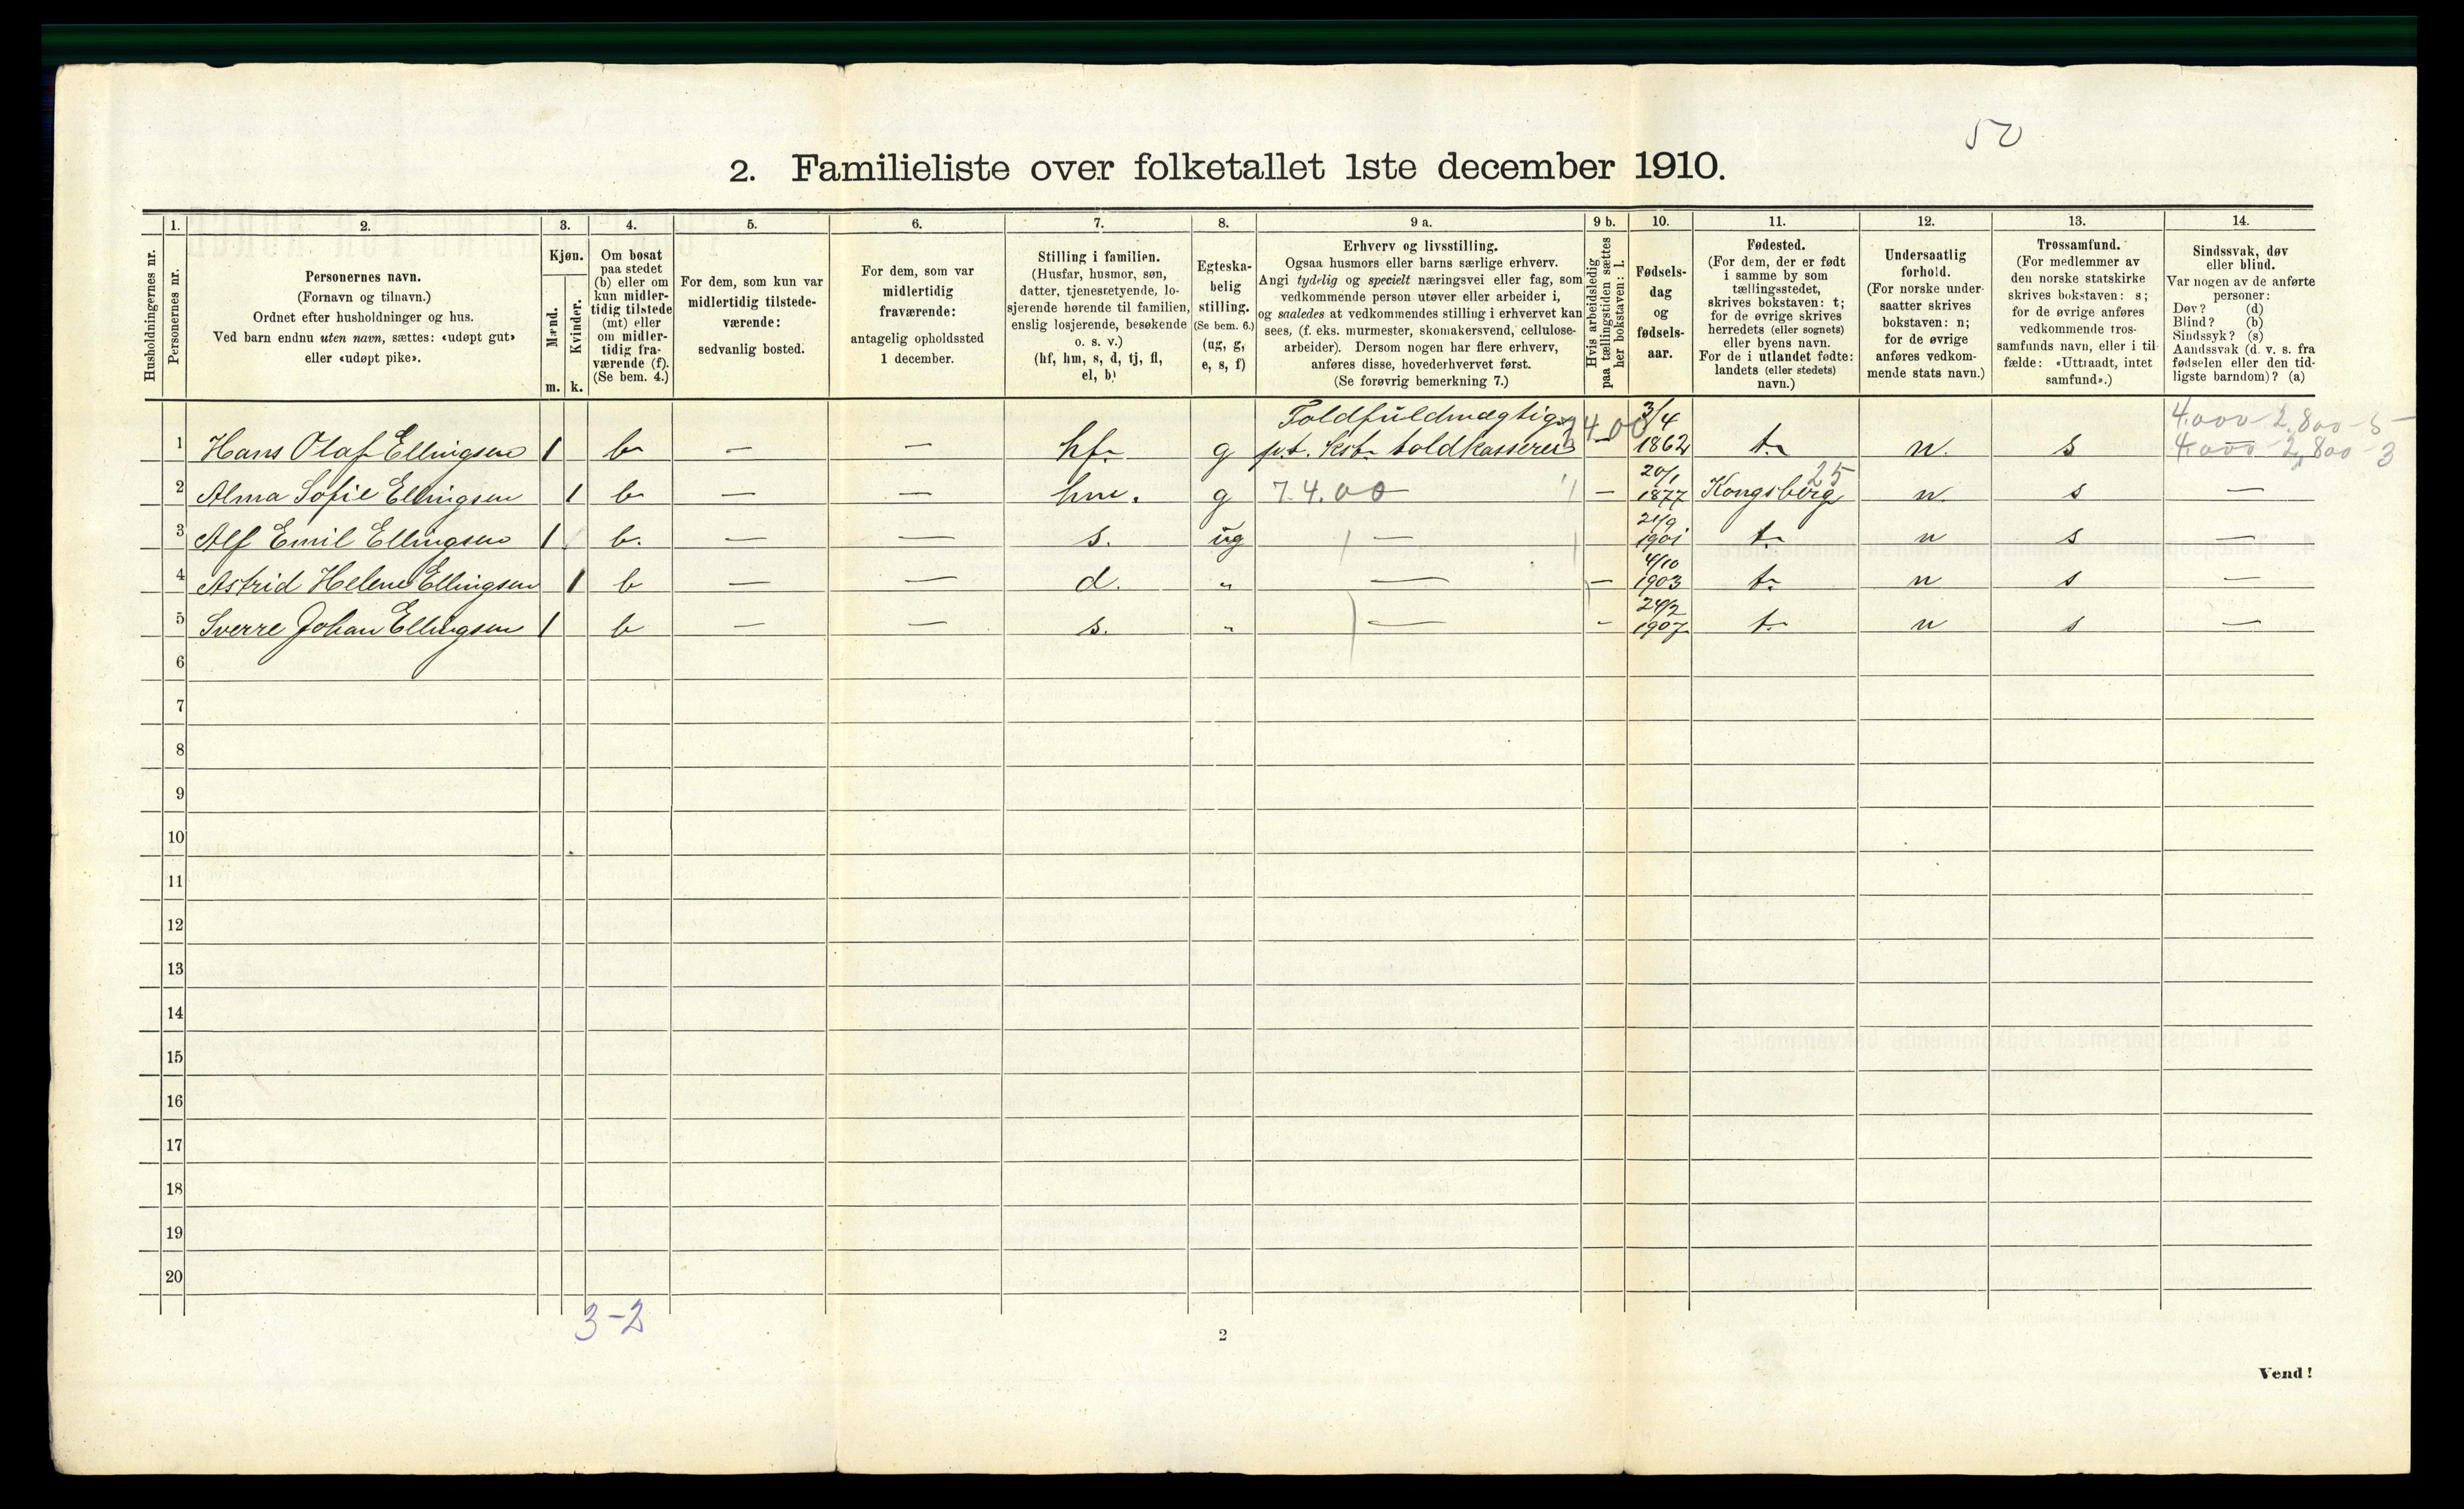 50
2. Familieliste over folketallet 1ste december 1910.
1. 2. 3. 4. 5. 6. 7. 8. 9 a. 9 b. 10. 11. 12. 13. 14.
Husholdningernes nr.
Personernes nr.
Personernes navn.
(Fornavn og tilnavn.)
Ordnet efter husholdninger og hus.
Ved barn endnu uten navn, sættes: «udøpt gut»
eller «udøpt pike».
Kjøn.
Mænd.
Kvinder.
m. k.
Om bosat
paa stedet
(b) eller om
kun midler-
tidig tilstede
(mt) eller
om midler-
tidig fra-
værende (f).
(Se bem. 4.)
For dem, som kun var
midlertidig tilstede-
værende:
sedvanlig bosted.
For dem, som var
midlertidig
fraværende:
antagelig opholdssted
1 december.
Stilling i familien.
(Husfar, husmor, søn,
datter, tjenestetyende, lo-
sjerende hørende til familien,
enslig losjerende, besøkende
o. s. v.)
(hf, hm, s, d, tj, fl,
el, b)
Egteska-
belig
stilling.
(Se bem. 6.)
(ug, g,
e, s, f)
Erhverv og livsstilling.
Ogsaa husmors eller barns særlige erhverv.
Angi tydelig og specielt næringsvei eller fag, som
vedkommende person utøver eller arbeider i,
og saaledes at vedkommendes stilling i erhvervet kan
sees, (f. eks. murmester, skomakersvend, cellulose-
arbeider). Dersom nogen har flere erhverv,
anføres disse, hovederhvervet først.
(Se forøvrig bemerkning 7.)
Hvis arbeidsledig
paa tællingstiden sættes
her bokstaven: l.
Fødsels-
dag
og
fødsels-
aar.
Fødested.
(For dem, der er født
i samme by som
tællingsstedet,
skrives bokstaven: t;
for de øvrige skrives
herredets (eller sognets)
eller byens navn.
For de i utlandet fødte:
landets (eller stedets)
navn.)
Undersaatlig
forhold.
(For norske under-
saatter skrives
bokstaven: n;
for de øvrige
anføres vedkom-
mende stats navn.)
Trossamfund.
(For medlemmer av
den norske statskirke
skrives bokstaven: s;
for de øvrige anføres
vedkommende tros-
samfunds navn, eller i til-
fælde: «Uttraadt, intet
samfund».)
Sindssvak, døv
eller blind.
Var nogen av de anførte
personer:
Døv? (d)
Blind? (b)
Sindssyk? (s)
Aandssvak (d. v. s. fra
fødselen eller den tid-
ligste barndom)? (a)
Toldfuldmægtig 3/4 4.000-2.800-5-
1 Hans Olaf Ellingsen 1 b. — — hf. g p.t. kst. toldkasserer — 1862 t. n. s 4.000-2,800-3
20/1 25
2 Alma Sofie Ellingsen 1 b — — hm. g 7.4.00 — 1877 Kongsberg n. s —
21/9
3 Alf Emil Ellingsen 1 b. — — s. ug — 1901 t. n s —
4/10
4 Astrid Helene Ellingsen 1 b — — d. „ — — 1903 t. n s —
24/2
5 Sverre Johan Ellingsen 1 b — — s. „ — - 1907 t. n s —
6
7
8
9
10
11
12
13
14
15
16
17
18
19
20
3-2
2
Vend!